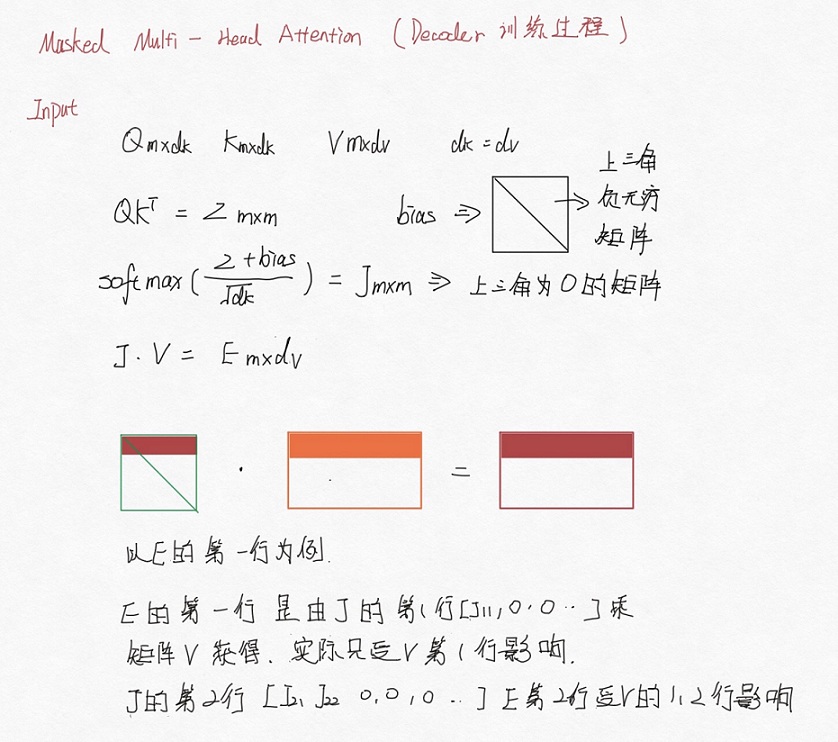 Masked Multi-Head Attention (Decoder 训练过程)
Input
Qmxdk Kmxdk Vmxdv dk=dv
QKᵀ = Zmxm bias ⇒ 上三角
负无穷
矩阵
softmax(Z+bias/√dk) = Jmxm ⇒ 上三角为0的矩阵
J·V = Emxdv
· =
以E的第一行为例.
E的第一行是由J的第1行[J11,0,0··]乘
矩阵V获得.实际只受V第1行影响.
J的第2行[J21 J22 0,0,0··]E第2行受V的1,2行影响